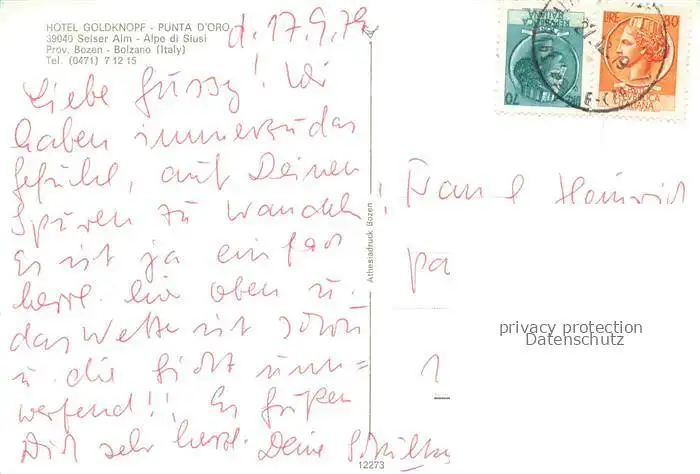 HOTEL GOLDKNOPF - PUNTA D'ORO
39040 Seiser Alm - Alpe di Siusi
Prov. Bozen - Bolzano (Italy)
Tel. (0471) 7 12 15
d. 17.9.79
Liebe Gussy! Wir
haben immerzu das
Gefühl, auf Deinen
Spuren zu wandeln!
Es ist ja einfach
herrl. hier oben u.
das Wetter ist schön
u. die Sicht umm=
werfend!! Es grüßen
Dich sehr herzl. Deine
Athesiadruck Bozen
12273
70
LIRE 80
REPUBBLICA
ITALIANA
Heinrich
pa
1
privacy protection
Datenschutz